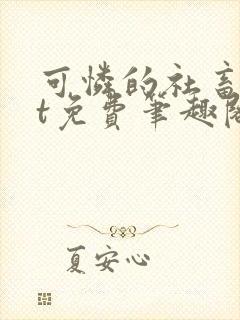 可憐的社畜
t免費筆趣閣
夏安心